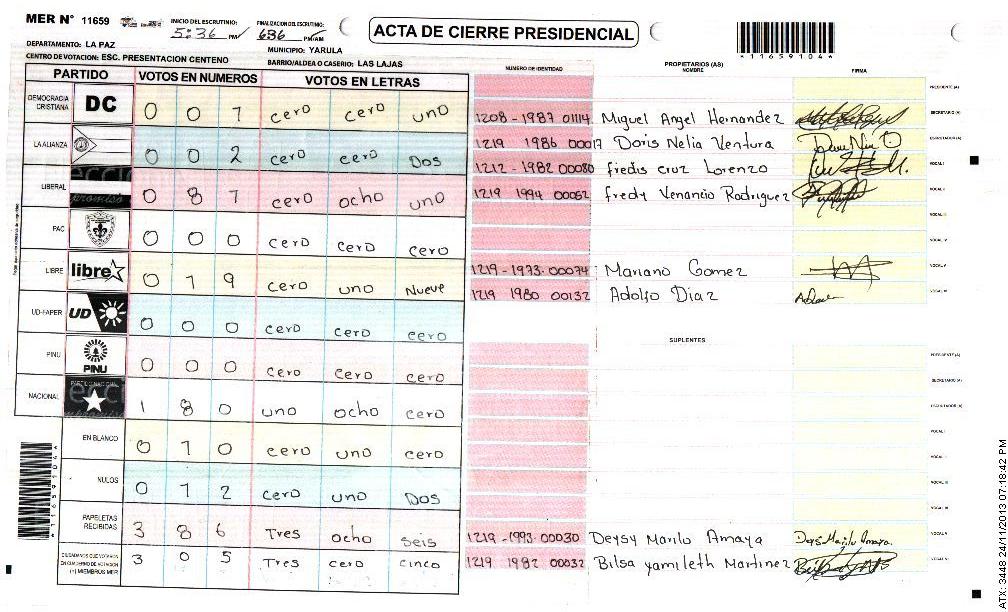 MER N° 11659
INICIO DEL ESCRUTINIO: 5:36 PM/
FINALIZACION DEL ESCRUTINIO: 636 PM/AM
ACTA DE CIERRE PRESIDENCIAL
*11659104*
DEPARTAMENTO: LA PAZ
MUNICIPIO: YARULA
CENTRO DE VOTACION: ESC. PRESENTACION CENTENO
BARRIO/ALDEA O CASERIO: LAS LAJAS
PARTIDO VOTOS EN NUMEROS VOTOS EN LETRAS
DEMOCRACIA CRISTIANA DC 0 0 1 cero cero uno
LA ALIANZA 0 0 2 cero cero Dos
LIBERAL 0 8 1 cero ocho uno
PAC 0 0 0 cero cero cero
LIBRE libre 0 1 9 cero uno Nueve
UD-FAPER UD 0 0 0 cero cero cero
PINU PINU 0 0 0 cero cero cero
NACIONAL 1 8 0 uno ocho cero
EN BLANCO 0 1 0 cero uno cero
NULOS 0 1 2 cero uno Dos
PAPELETAS RECIBIDAS 3 8 6 Tres ocho seis
CIUDADANOS QUE VOTARON EN CUADERNO DE VOTACION (+) MIEMBROS MER 3 0 5 Tres cero cinco
NUMERO DE IDENTIDAD PROPIETARIOS (AS) NOMBRE FIRMA
PRESIDENTE (A)
1208-1987 01114 Miguel Angel Hernandez SECRETARIO (A)
1219 1986 00017 Doris Nelia Ventura ESCRUTADOR (A)
1212-1982 00080 fredis cruz Lorenzo VOCAL I
1219 1994 00062 fredy Venancio Rodriguez VOCAL II
VOCAL III
VOCAL IV
1219-1973-00074 Mariano Gomez VOCAL V
1219 1980 00132 Adolfo Diaz VOCAL VI
SUPLENTES
PRESIDENTE (A)
SECRETARIO (A)
ESCRUTADOR (A)
VOCAL I
VOCAL II
VOCAL III
VOCAL IV
1219-1993-00030 Deysy Marilo Amaya Deysy Marilo Amaya. VOCAL V
1219 1982 00032 Bilsa yamileth Martinez VOCAL VI
*11659104*
ATX: 3448 24/11/2013 07:18:42 PM